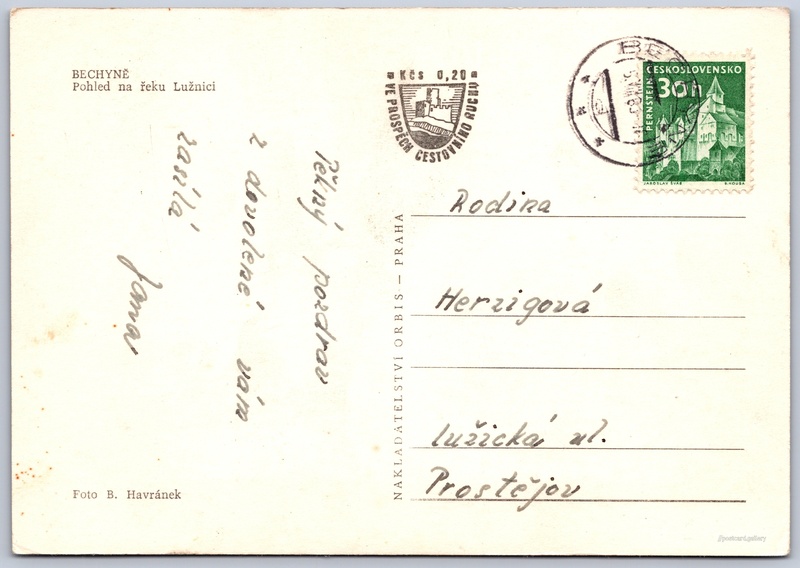 BECHYNĚ
Pohled na řeku Lužnici
Kčs 0,20
VE PROSPĚCH CESTOVNÍHO RUCHU
ČESKOSLOVENSKO
30h
PERNŠTEJN
JAROSLAV ŠVÁB
Pěkný pozdrav
z dovolené vám
zasílá
Jana
NAKLADATELSTVÍ ORBIS — PRAHA
Rodina
Herzigová
Lužická ul.
Prostějov
Foto B. Havránek
postcard.gallery